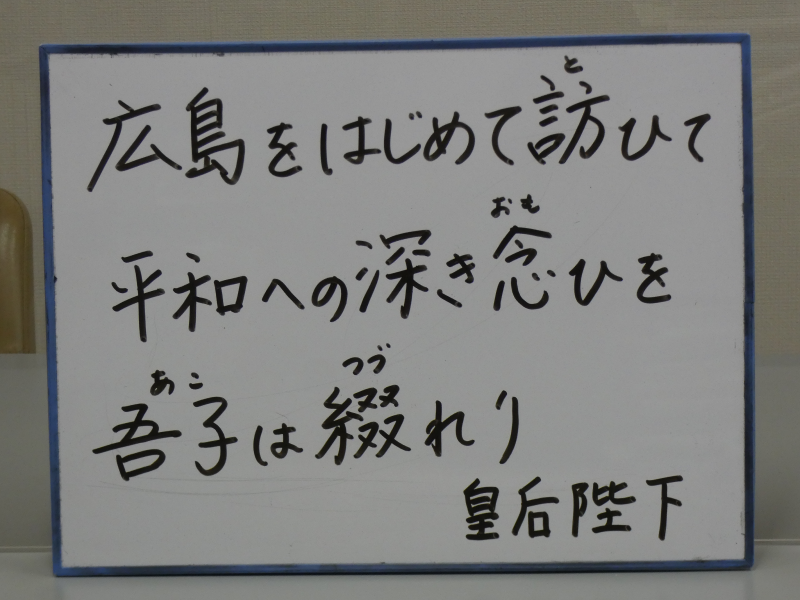 とつ
広島をはじめて訪ひて
おも
平和への深き念ひを
あこ つづ
吾子は綴れり
皇后陛下